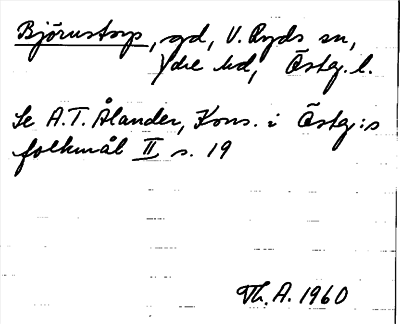 Björnstorp, gd, V. Ryds sn,
Ydre hd, Östg. l.
Se A.T. Ålander, Kons. i Östg:s
folkmål II s. 19
Th. A. 1960